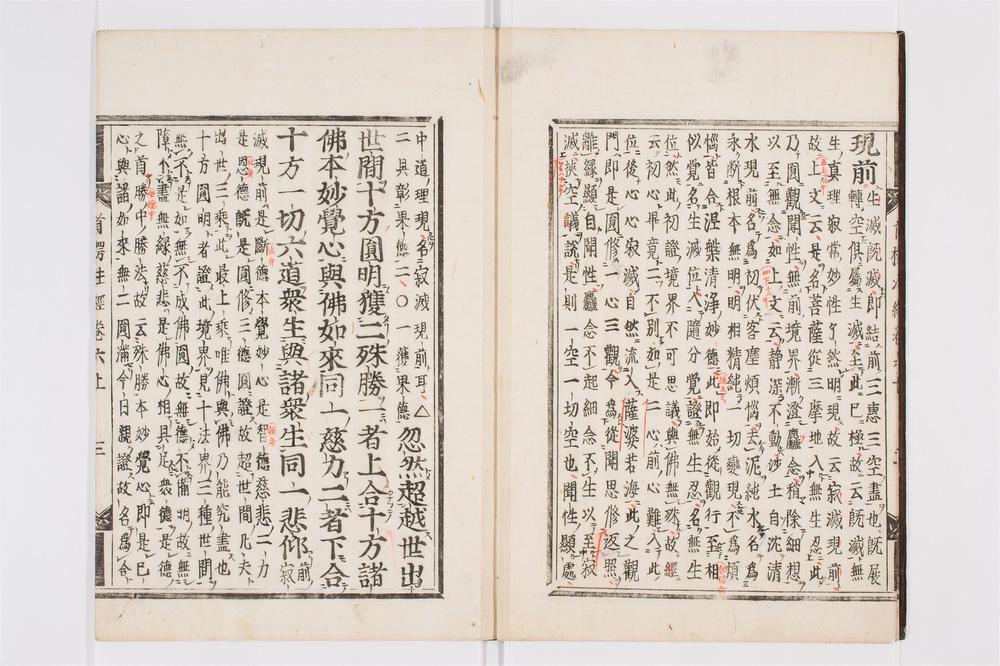 現前生滅旣滅即結前三惠三空盡也旣展
轉空俱屬生滅至此已極故云旣滅無
生眞理寂常妙性了然明現故云寂滅現前
故上文云是名菩薩從三摩地入無生忍此
乃圓觀聞性無前境界漸澄麤念稍除細想
以至無念如上文云靜深不動沙土自沈清
水現前名爲初伏客塵煩惱去泥純水名爲
永斷根本無明明相精純一切變現不爲煩
惱皆合涅槃清淨妙德此即始從觀行至相
似覺名生滅位人隨分覺證無生忍名無生
位然此初證境界不可思議與佛無殊故經
云初心畢竟二不別如是二心前心難入此
位後心心寂滅自然流入薩婆若海此之觀
門即是圓修一心三觀今爲從聞思修返照
離緣顯自聞性麤念不起細念不生以至寂
滅挾空議說是則一空一切空也聞性顯處
中道理現名寂滅現前耳△忽然超越世出
二具彰果德二○一獲果德
世間十方圓明獲二殊勝一者上合十方諸
佛本妙覺心與佛如來同一慈力二者下合
十方一切六道衆生與諸衆生同一悲仰前寂
滅現前是斷德本覺妙心是智德慈悲二力
是恩德旣是圓修三德圓證故超世間凡夫
出世三乘此最上乘唯佛與佛乃能究盡也
十方圓明者證此境界見十法界三種世間
無不是如無不成佛圓故無德不備明故無
障不盡無緣慈悲是佛心相具足衆德是德
之首勝中勝法故云殊勝本妙覺心即是已
心與諸如來無二圓滿今日親證故名爲合
首楞嚴經卷六上
三